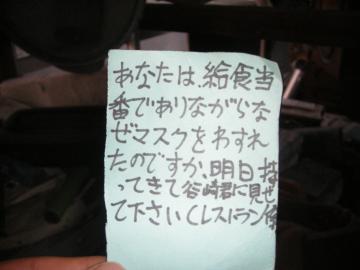 あなたは、給食当
番でありながらな
ぜマスクをわすれ
たのですか、明日持
ってきて谷崎君に見せ
て下さい(レストラン係